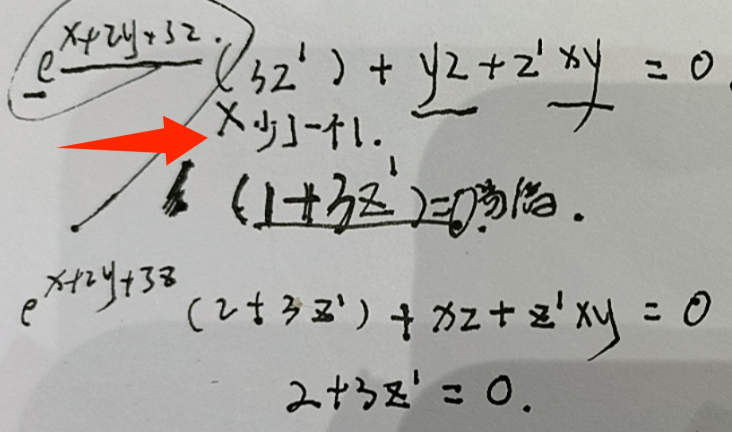 e^{x+2y+3z} · (3z') + yz + z'xy = 0
x 少了一个1.
(1+3z')=0
e^{x+2y+3z} (2+3z') + xz + z'xy = 0
2+3z' = 0.